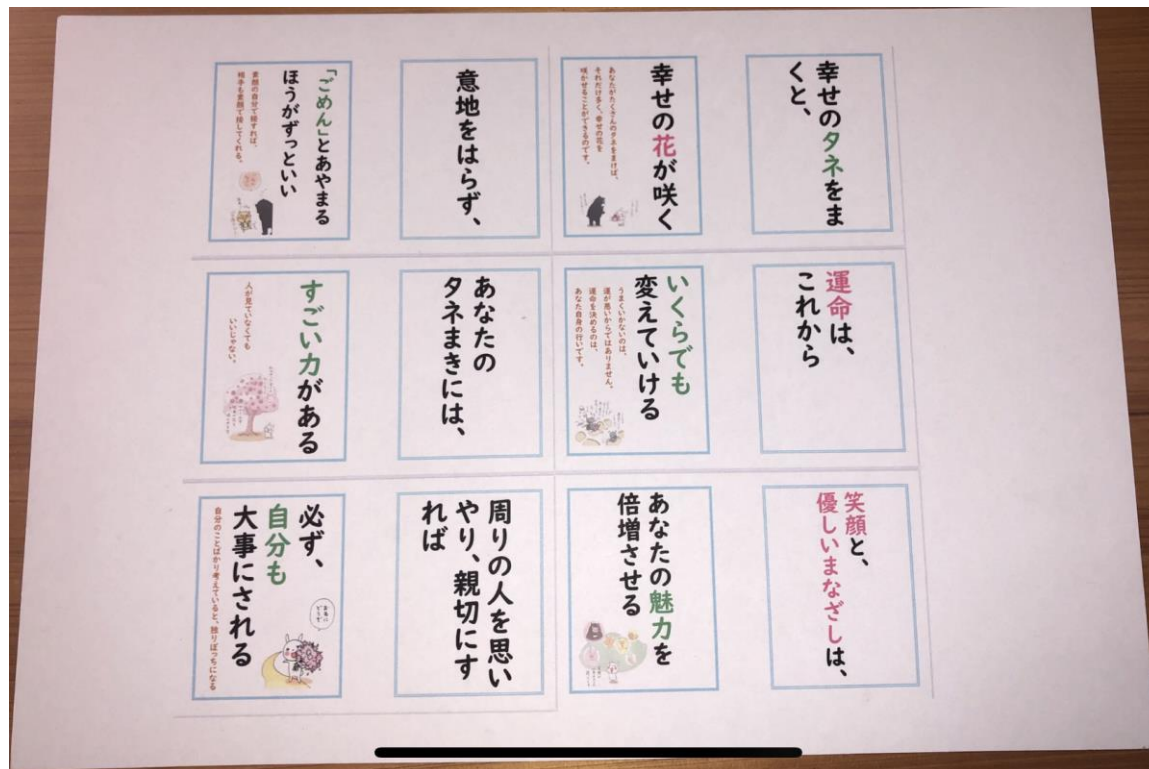 幸せのタネをま
くと、
幸せの花が咲く
あなたがたくさんのタネをまけば、
それだけ多く、幸せの花を
咲かせることができるのです。
意地をはらず、
「ごめん」とあやまる
ほうがずっといい
素顔の自分で接すれば、
相手も素顔で接してくれる。
運命は、
これから
いくらでも
変えていける
うまくいかないのは、
運が悪いからではありません。
運命を決めるのは、
あなた自身の行いです。
あなたの
タネまきには、
すごい力がある
人が見ていなくても
いいじゃない。
笑顔と、
優しいまなざしは、
あなたの魅力を
倍増させる
周りの人を思い
やり、親切にす
れば
必ず、
自分も
大事にされる
自分のことばかり考えていると、独りぼっちになる